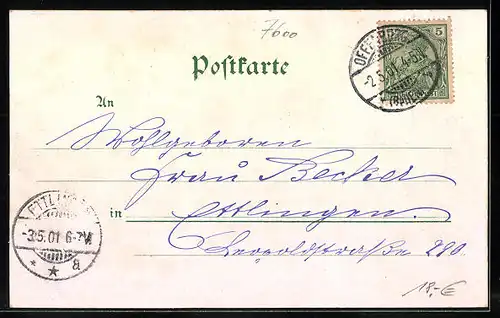 7600
Postkarte
OFFENBURG
-2.5.01.4-5N.
(BADEN)
5
An
Wohlgeboren
Frau Becker
in Ettlingen.
Leopoldstraße 280.
ETTLINGEN
-3.5.01 6-7V.
* * a
18,-€